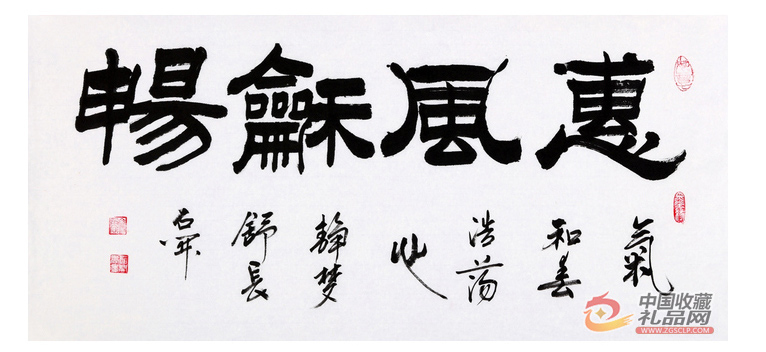 惠風龢暢
氣
和春
浩蕩
心
静梦
舒長
中国收藏
礼品网
WWW.ZGSCLP.COM